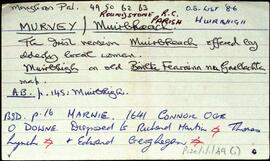 Moyrus Par. 49 50 62 63 O.S. List '86
ROUNDSTONE R.C. PARISH Muirbhigh
MURVEY / Muirbheach.
The Irish version Muirbheach offered by
elderly local women.
Muirbhigh on old Bailte Fearainn na Gaeltachta
map.
A.B. p. 145: Muirbhigh.
BSD. p. 16 MARWIE. 1641 Connor Oge
O Downe Disposed to Richard Martin Thomas
Lynch & Edward Geoghegan